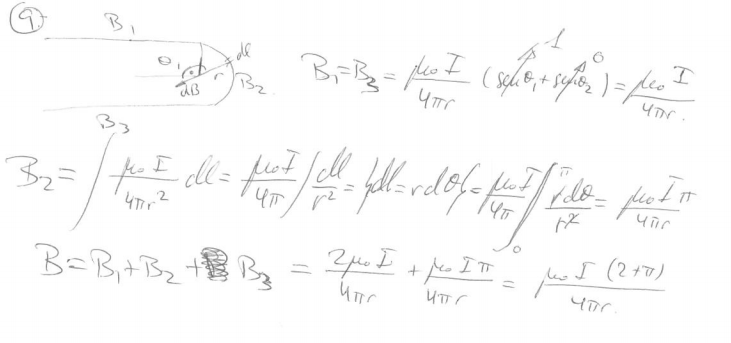 9
B₁
θ₁ dl
dB r B₂
B₃
B₁=B₃ = μ₀I/4πr (senθ₁+senθ₂) = μ₀I/4πr.
1 0
B₂ = ∫ μ₀I/4πr² dl = μ₀I/4π ∫ dl/r² = {dl=rdθ} = μ₀I/4π ∫₀^π rdθ/r² = μ₀Iπ/4πr
B=B₁+B₂+B₃ = 2μ₀I/4πr + μ₀Iπ/4πr = μ₀I(2+π)/4πr.